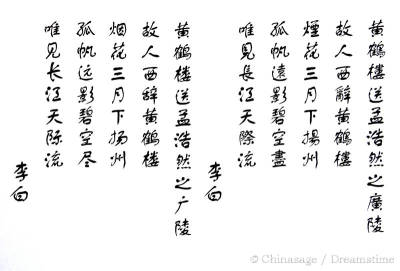 黄鶴樓送孟浩然之廣陵
故人西辭黄鶴樓
煙花三月下揚州
孤帆遠影碧空盡
唯見長江天際流
李白
黄鹤楼送孟浩然之广陵
故人西辞黄鹤楼
烟花三月下扬州
孤帆远影碧空尽
唯见长江天际流
李白
© Chinasage / Dreamstime